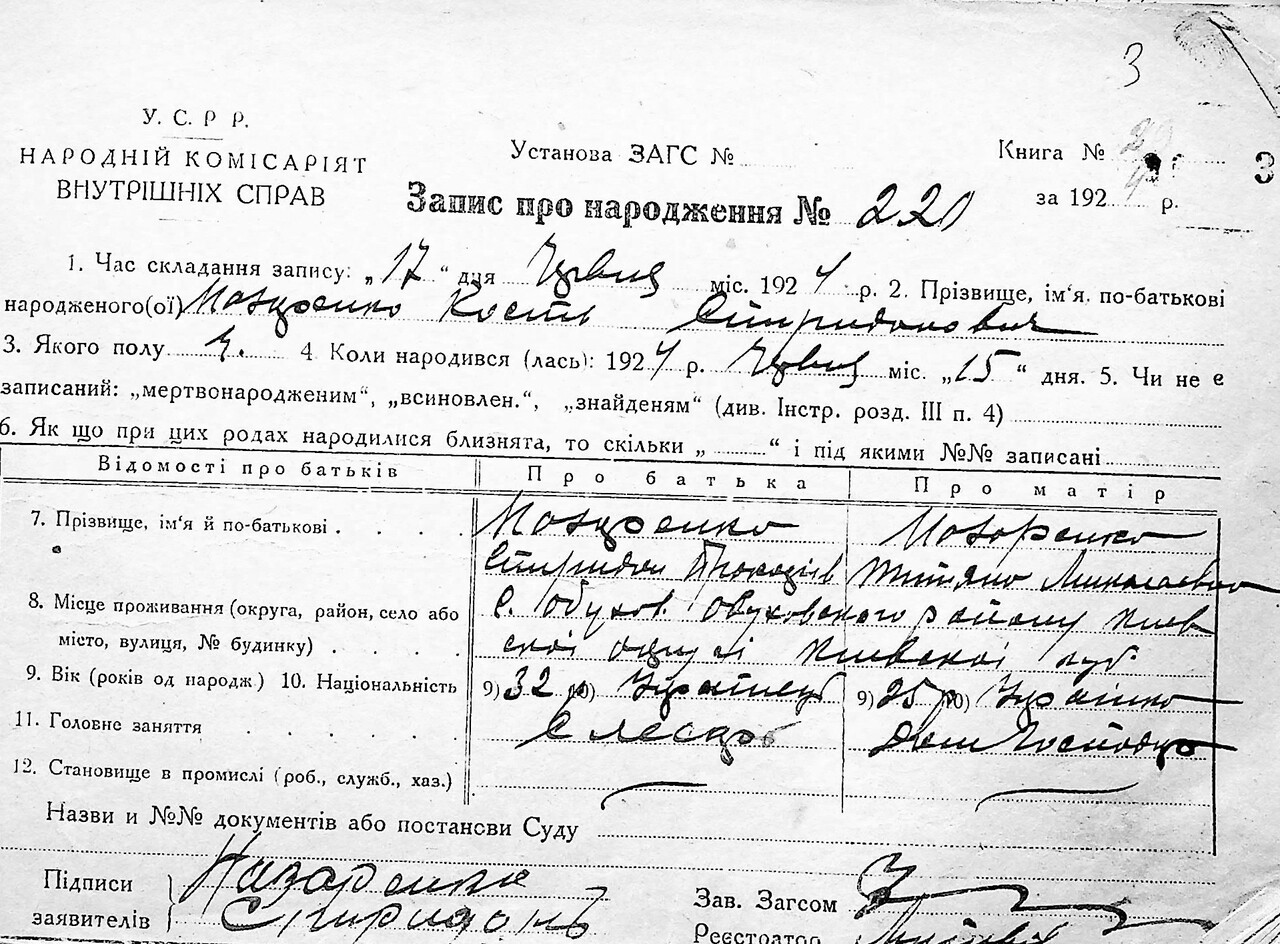 3
У. С. Р Р.
НАРОДНІЙ КОМІСАРІЯТ
ВНУТРІШНІХ СПРАВ
Установа ЗАГС №
Книга №
3
за 1924 р.
Запис про народження № 220
1. Час складання запису: „17“ дня Червця міс. 1924 р. 2. Прізвище, ім‘я, по-батькові
народженого(ої) Кость Спиридонович
3. Якого полу ч. 4 Коли народився (лась): 1924 р. Червця міс. „15“ дня. 5. Чи не є
записаний: „мертвонародженим“, „всиновлен.“, „знайденям“ (див. Інстр. розд. III п. 4)
6. Як що при цих родах народилися близнята, то скільки „ “ і під якими №№ записані
Відомості про батьків Про батька Про матір
7. Прізвище, ім‘я й по-батькові
Спиридон Титяна Миколаевна
8. Місце проживання (округа, район, село або
місто, вулиця, № будинку)
с. Обухов. Обуховского району Киев
скоі округі Киевскоі губ.
9. Вік (років од народж.) 10. Національність 9) 32 р 10) Украінець 9) 25 р 10) Украінка
11. Головне заняття Слесарь Дом Господар
12. Становище в промислі (роб., служб., хаз.)
Назви и №№ документів або постанови Суду
Підписи
заявителів
Назаренко
Спиридонъ
Зав. Загсом
Реєстратор